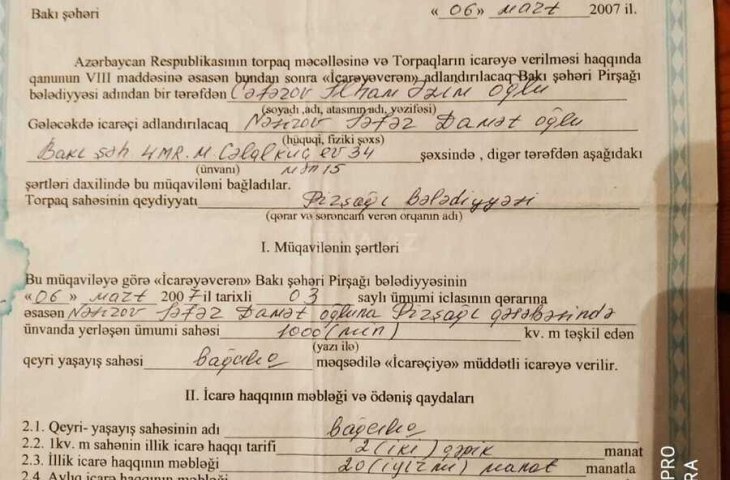 Bakı şəhəri « 06 » mart 2007 il.
Azərbaycan Respublikasının torpaq məcəlləsinə və Torpaqların icarəyə verilməsi haqqında
qanunun VIII maddəsinə əsasən bundan sonra «İcarəyəverən» adlandırılacaq Bakı şəhəri Pirşağı
bələdiyyəsi adından bir tərəfdən Cəfərov İlham Əzim oğlu
(soyadı ,adı, atasının adı, vəzifəsi)
Gələcəkdə icarəçi adlandırılacaq Nəzirov Səfər Damət oğlu
(hüquqi, fiziki şəxs)
Bakı şəh 4 MR. M. Cəlal küç ev 34 şəxsində , digər tərəfdən aşağıdakı
(ünvanı) mən 15
şərtləri daxilində bu müqaviləni bağladılar.
Torpaq sahəsinin qeydiyyatı Pirşağı bələdiyyəsi
(qərar və sərəncam verən orqanın adı)
I. Müqavilənin şərtləri
Bu müqaviləyə görə «İcarəyəverən» Bakı şəhəri Pirşağı bələdiyyəsinin
« 06 » mart 2007 il tarixli 03 saylı ümumi iclasının qərarına
əsasən Nəzirov Səfər Damət oğluna Pirşağı qəsəbəsində
ünvanda yerləşən ümumi sahəsi 1000 (min) kv. m təşkil edən
(yazı ilə)
qeyri yaşayış sahəsi bağçılıq məqsədilə «İcarəçiyə» müddətli icarəyə verilir.
II. İcarə haqqının məbləği və ödəniş qaydaları
2.1. Qeyri- yaşayış sahəsinin adı bağçılıq
2.2. 1kv. m sahənin illik icarə haqqı tarifi 2 (iki) qəpik manat
2.3. İllik icarə haqqının məbləği 20 (iyirmi) manat manatla
2.4. Aylıq icarə haqqının məbləği
PRO
RA